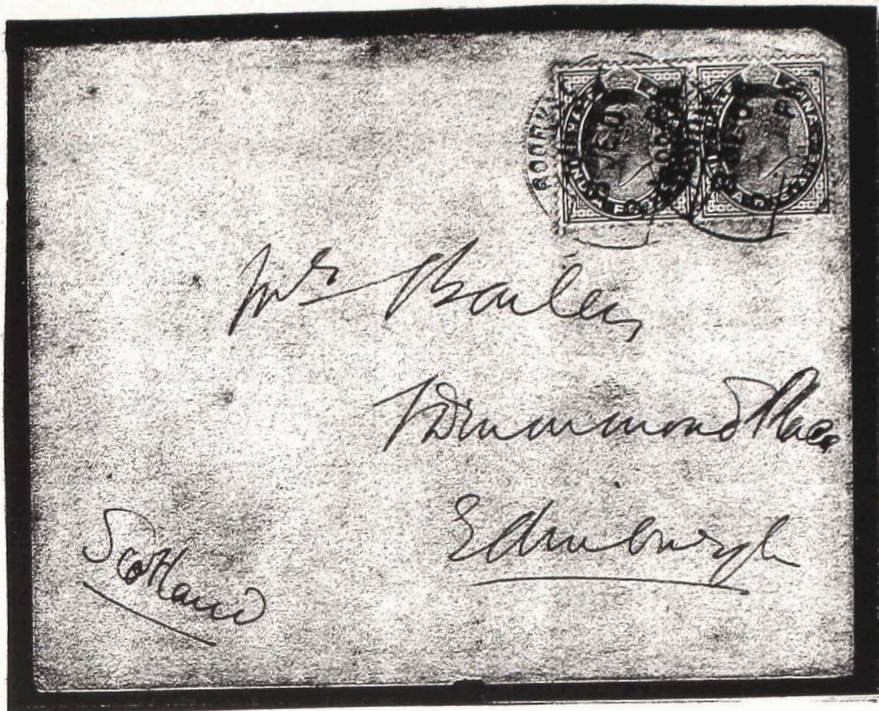 Mrs Bailey
1 Drummond Place
Edinburgh
Scotland